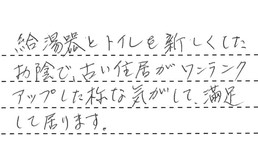 給湯器とトイレを新しくした
お陰で、古い住居がワンランク
アップした様な気がして、満足
して居ります。